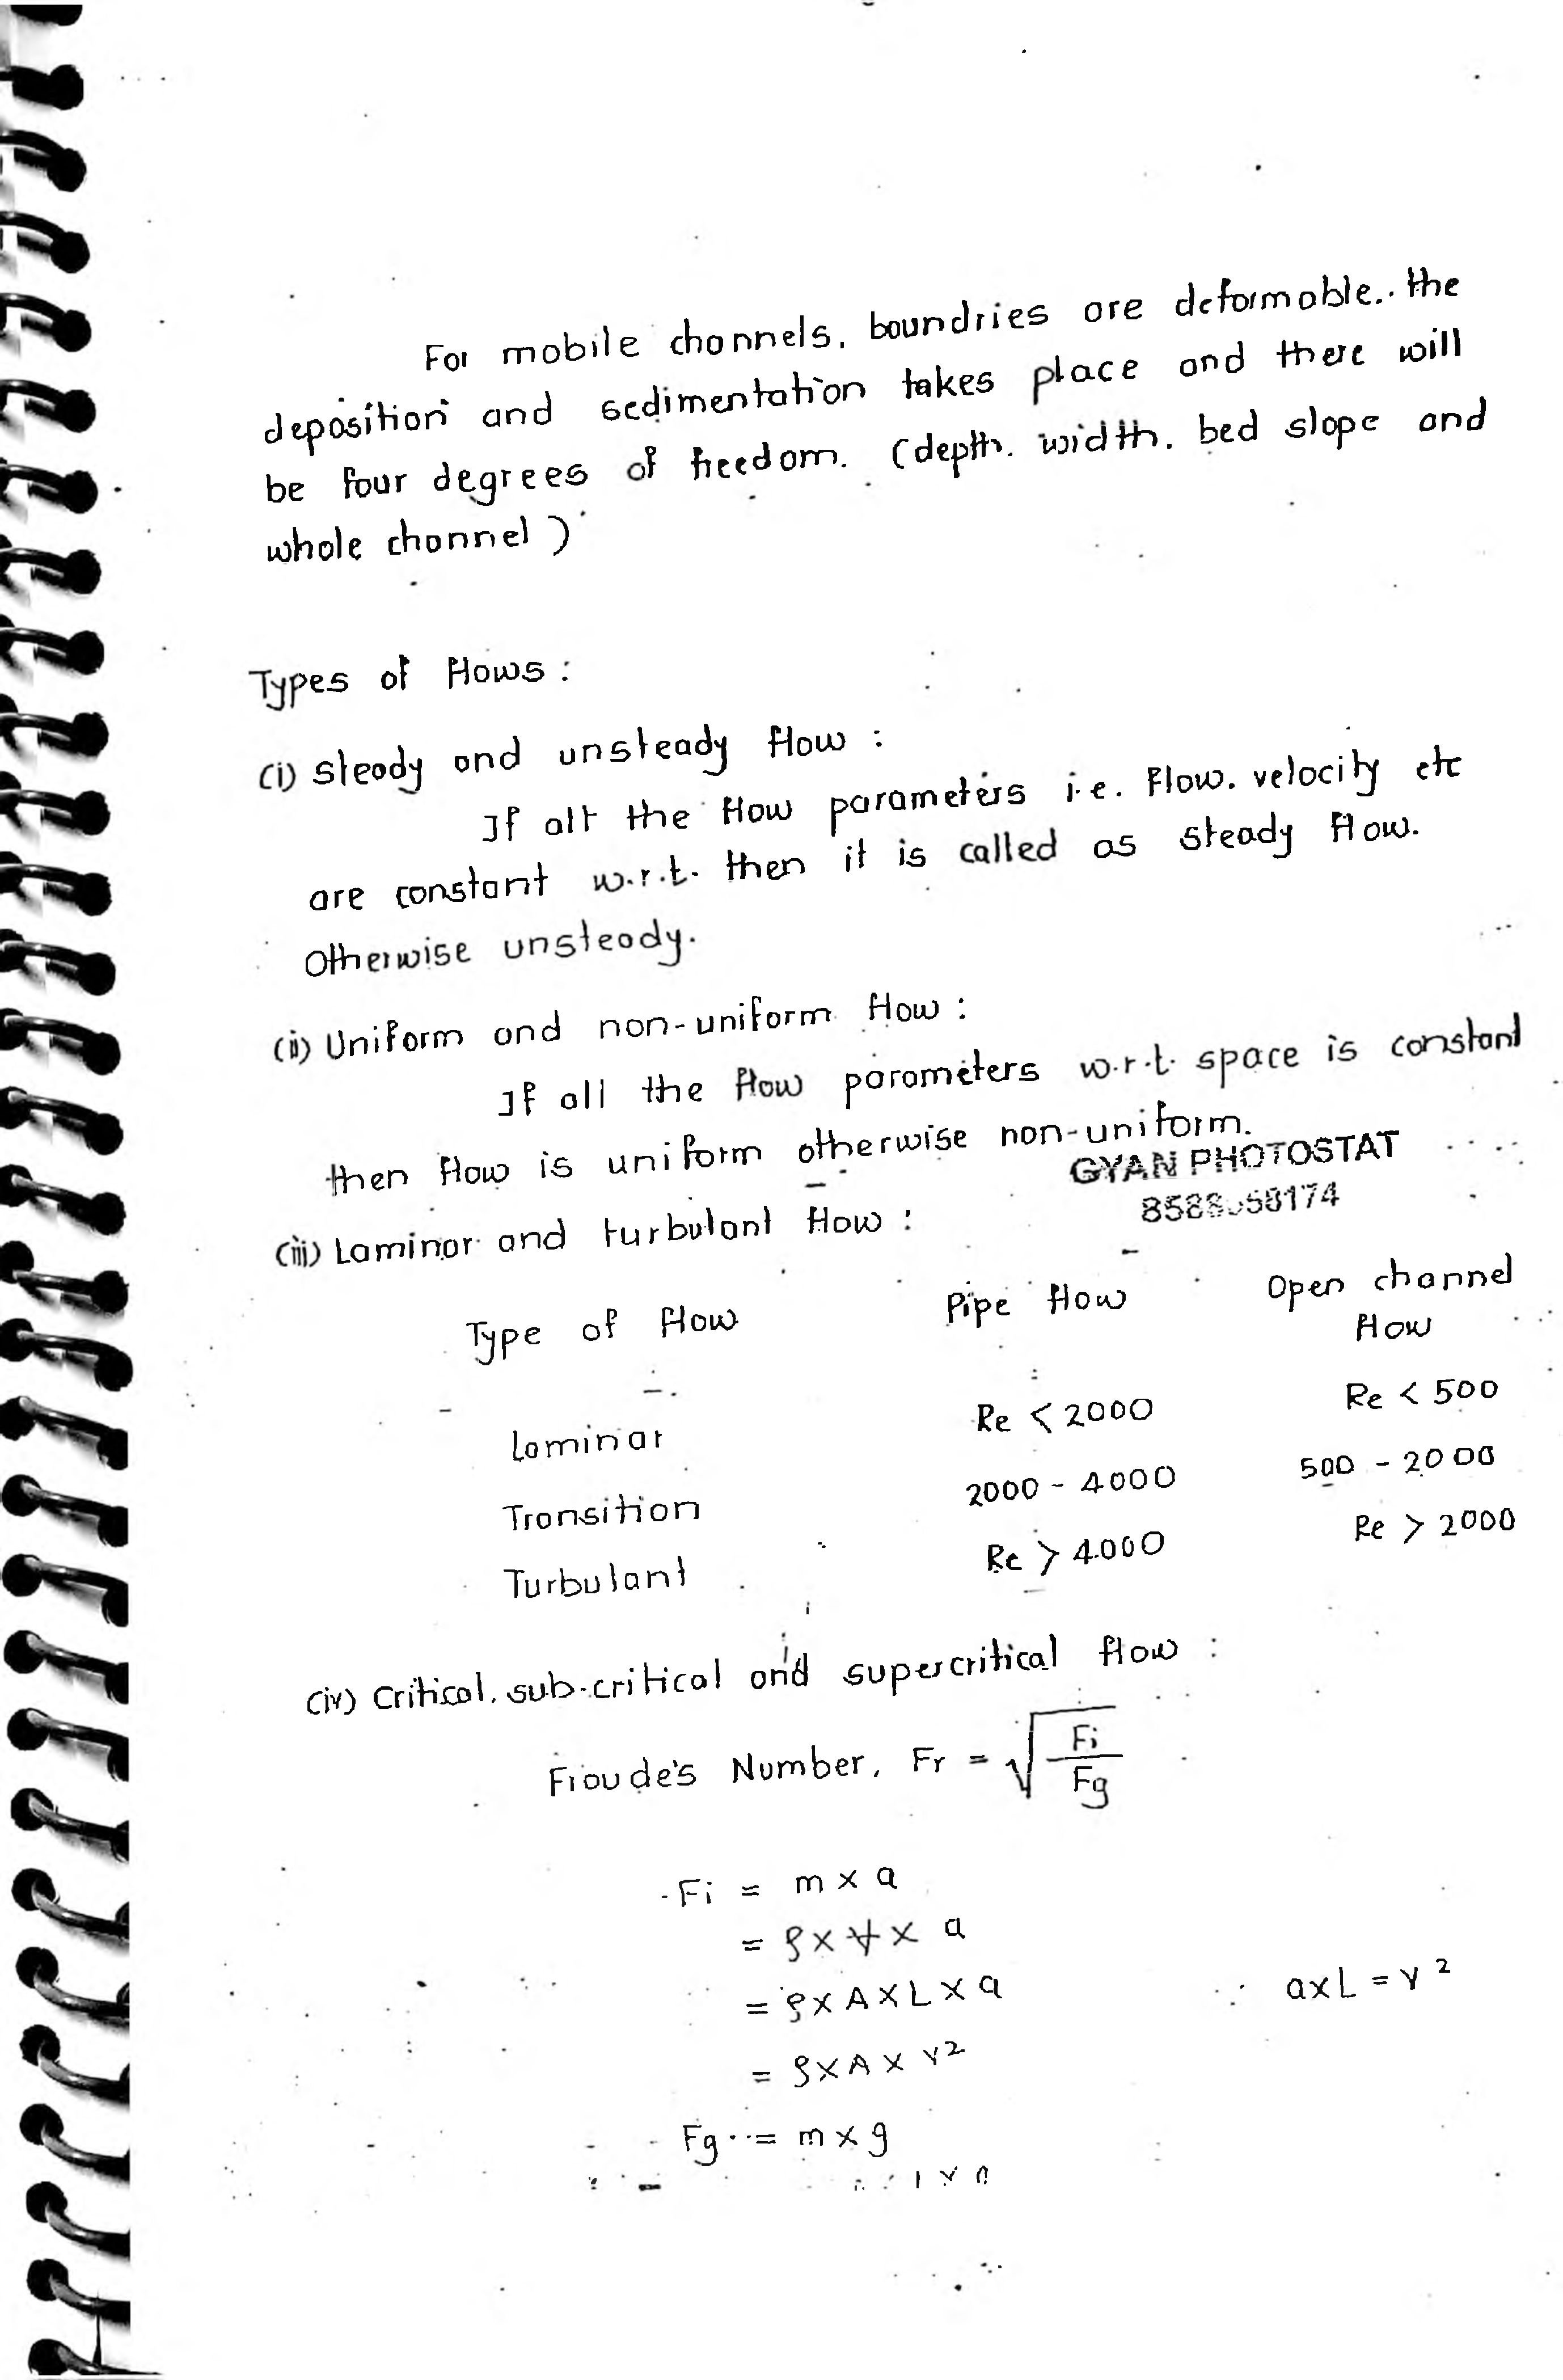 For mobile channels, boundries are deformable.. the
deposition and sedimentation takes place and there will
be four degrees of freedom. (depth, width, bed slope and
whole channel)
Types of flows :
(i) Steady and unsteady flow :
If all the flow parameters i.e. Flow, velocity etc
are constant w.r.t. then it is called as steady flow.
Otherwise unsteady.
(ii) Uniform and non-uniform flow :
If all the flow parameters w.r.t. space is constant
then flow is uniform otherwise non-uniform.
GYAN PHOTOSTAT
(iii) Laminar and turbulant flow :
Type of flow Pipe flow Open channel
flow
Laminar Re < 2000 Re < 500
Transition 2000 - 4000 500 - 2000
Turbulant Re > 4000 Re > 2000
(iv) Critical, sub-critical and supercritical flow :
Froude's Number, Fr = √(Fi/Fg)
Fi = m x a
= ρ x V x a
= ρ x A x L x a ∵ a x L = v²
= ρ x A x v²
Fg = m x g